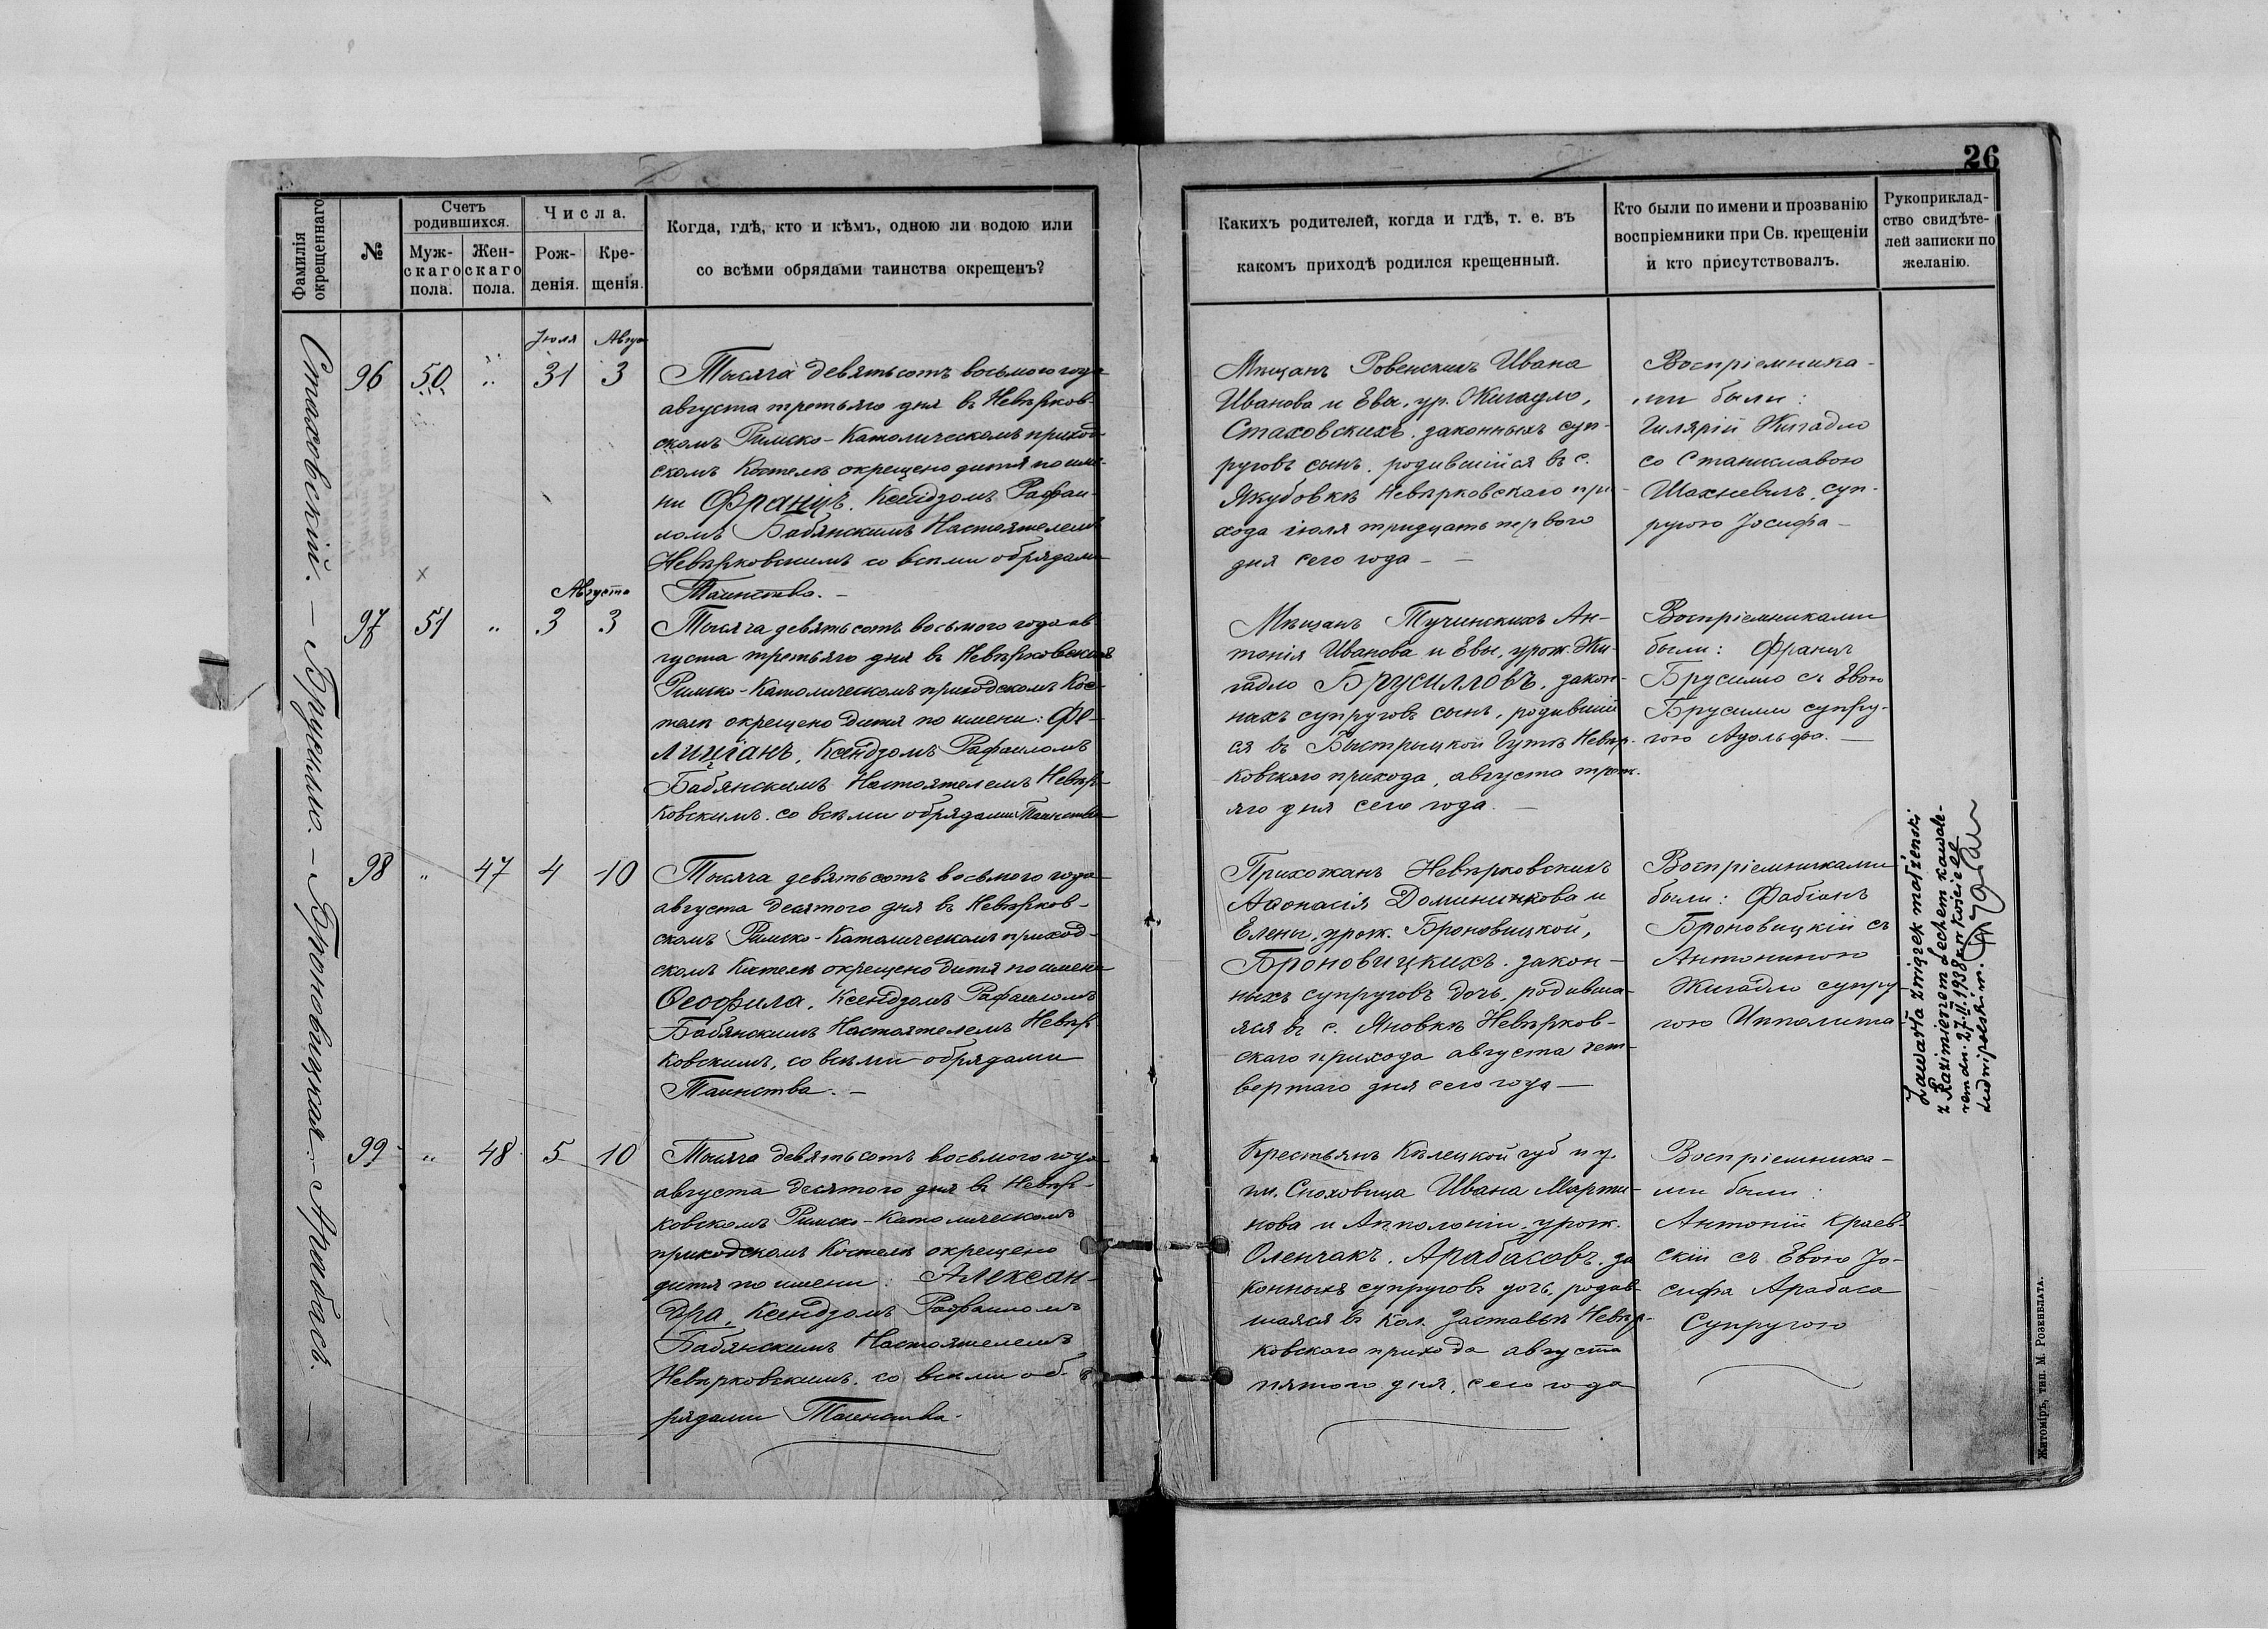 26
Фамилія окрещеннаго
№
Счетъ родившихся.
Муж-
скаго
пола.
Жен-
скаго
пола.
Числа.
Рож-
денія.
Кре-
щенія.
Когда, гдѣ, кто и кѣмъ, одною ли водою или
со всѣми обрядами таинства окрещенъ?
Какихъ родителей, когда и гдѣ, т. е. въ
какомъ приходѣ родился крещенный.
Кто были по имени и прозванію
воспріемники при Св. крещеніи
и кто присутствовалъ.
Рукоприклад-
ство свидѣте-
лей записки по
желанію.
Стаховскій. — Брусилло. — Броновицкая. — Арабасъ. —
Іюля Авгус
96 50 " 31 3
Тысяча девятьсотъ восьмого года
августа третьяго дня въ Невѣрков-
скомъ Римско-Католическомъ приход-
скомъ Костелѣ окрещено дитя по име-
ни Францъ. Ксендзомъ Рафаи-
ломъ Бабянскимъ Настоятелемъ
Невѣрковскимъ со всѣми обрядами
Таинства. —
Мѣщанъ Ровенскихъ Ивана
Иванова и Евы, ур. Жигадло,
Стаховскихъ. законныхъ суп-
руговъ сынъ. родившійся въ с.
Якубовкѣ Невѣрковскаго при-
хода іюля тридцать перваго
дня сего года — —
Воспріемника-
ми были:
Гилярій Жигадло
со Станиславою
Шахневичъ, суп-
ругою Іосифа —
Августа
97 51 " 3 3
Тысяча девятьсотъ восьмого года ав
густа третьяго дня въ Невѣрковскомъ
Римско-Католическомъ приходскомъ Кос-
телѣ окрещено дитя по имени: Фе-
лиціанъ, Ксендзомъ Рафаиломъ
Бабянскимъ Настоятелемъ Невѣр-
ковскимъ. со всѣми обрядами Таинства
Мѣщанъ Тучинскихъ Ан-
тонія Иванова и Евы, урож. Жи-
гадло Брусилловъ. закон-
ныхъ супруговъ сынъ, родившій
ся въ Быстрицкой Гутѣ Невѣр-
ковскаго прихода, августа треть-
яго дня сего года. —
Воспріемниками
были: Францъ
Брусилло съ Евою
Брусилло супру-
гою Адольфа. —
98 " 47 4 10
Тысяча девятьсотъ восьмого года
августа десятого дня въ Невѣрков-
скомъ Римско-Католическомъ приход-
скомъ Костелѣ окрещено дитя по имени
Ѳеофила. Ксендзомъ Рафаиломъ
Бабянскимъ Настоятелемъ Невѣр
ковскимъ, со всѣми обрядами
Таинства. —
Прихожанъ Невѣрковскихъ
Афонасія Доминикова и
Елены, урож. Броновицкой,
Броновицкихъ. закон-
ныхъ супруговъ дочь, родивша-
яся въ с. Яновкѣ Невѣрков-
скаго прихода августа чет-
вертаго дня сего года —
Воспріемниками
были: Фабіанъ
Броновицкій съ
Антониною
Жигадло супру-
гою Ипполита
Zawarła związek małżeński
z Kazimierzem Lechem kawale-
rem dn. 27.II.1938 r. w kościele
ludwipolskim.
99 " 48 5 10
Тысяча девятьсотъ восьмого года
августа десятого дня въ Невѣр-
ковскомъ Римско-Католическомъ
приходскомъ Костелѣ окрещено
дитя по имени: Алексан-
дра, Ксендзомъ Рафаиломъ
Бабянскимъ Настоятелемъ
Невѣрковскимъ. со всѣми об-
рядами Таинства.
Крестьянъ Кѣлецкой губ и у.
гм. Сноховица Ивана Марти-
нова и Апполоніи, урож.
Оленчакъ. Арабасовъ. за
конныхъ супруговъ дочь, родив-
шаяся въ кол. Заставьѣ Невѣр-
ковского прихода августа
пятого дня, сего года
Воспріемника-
ми были:
Антоній Краев-
скій съ Евою Іо-
сифа Арабаса
Супругою
Житоміръ, тип. М. Розенблата.